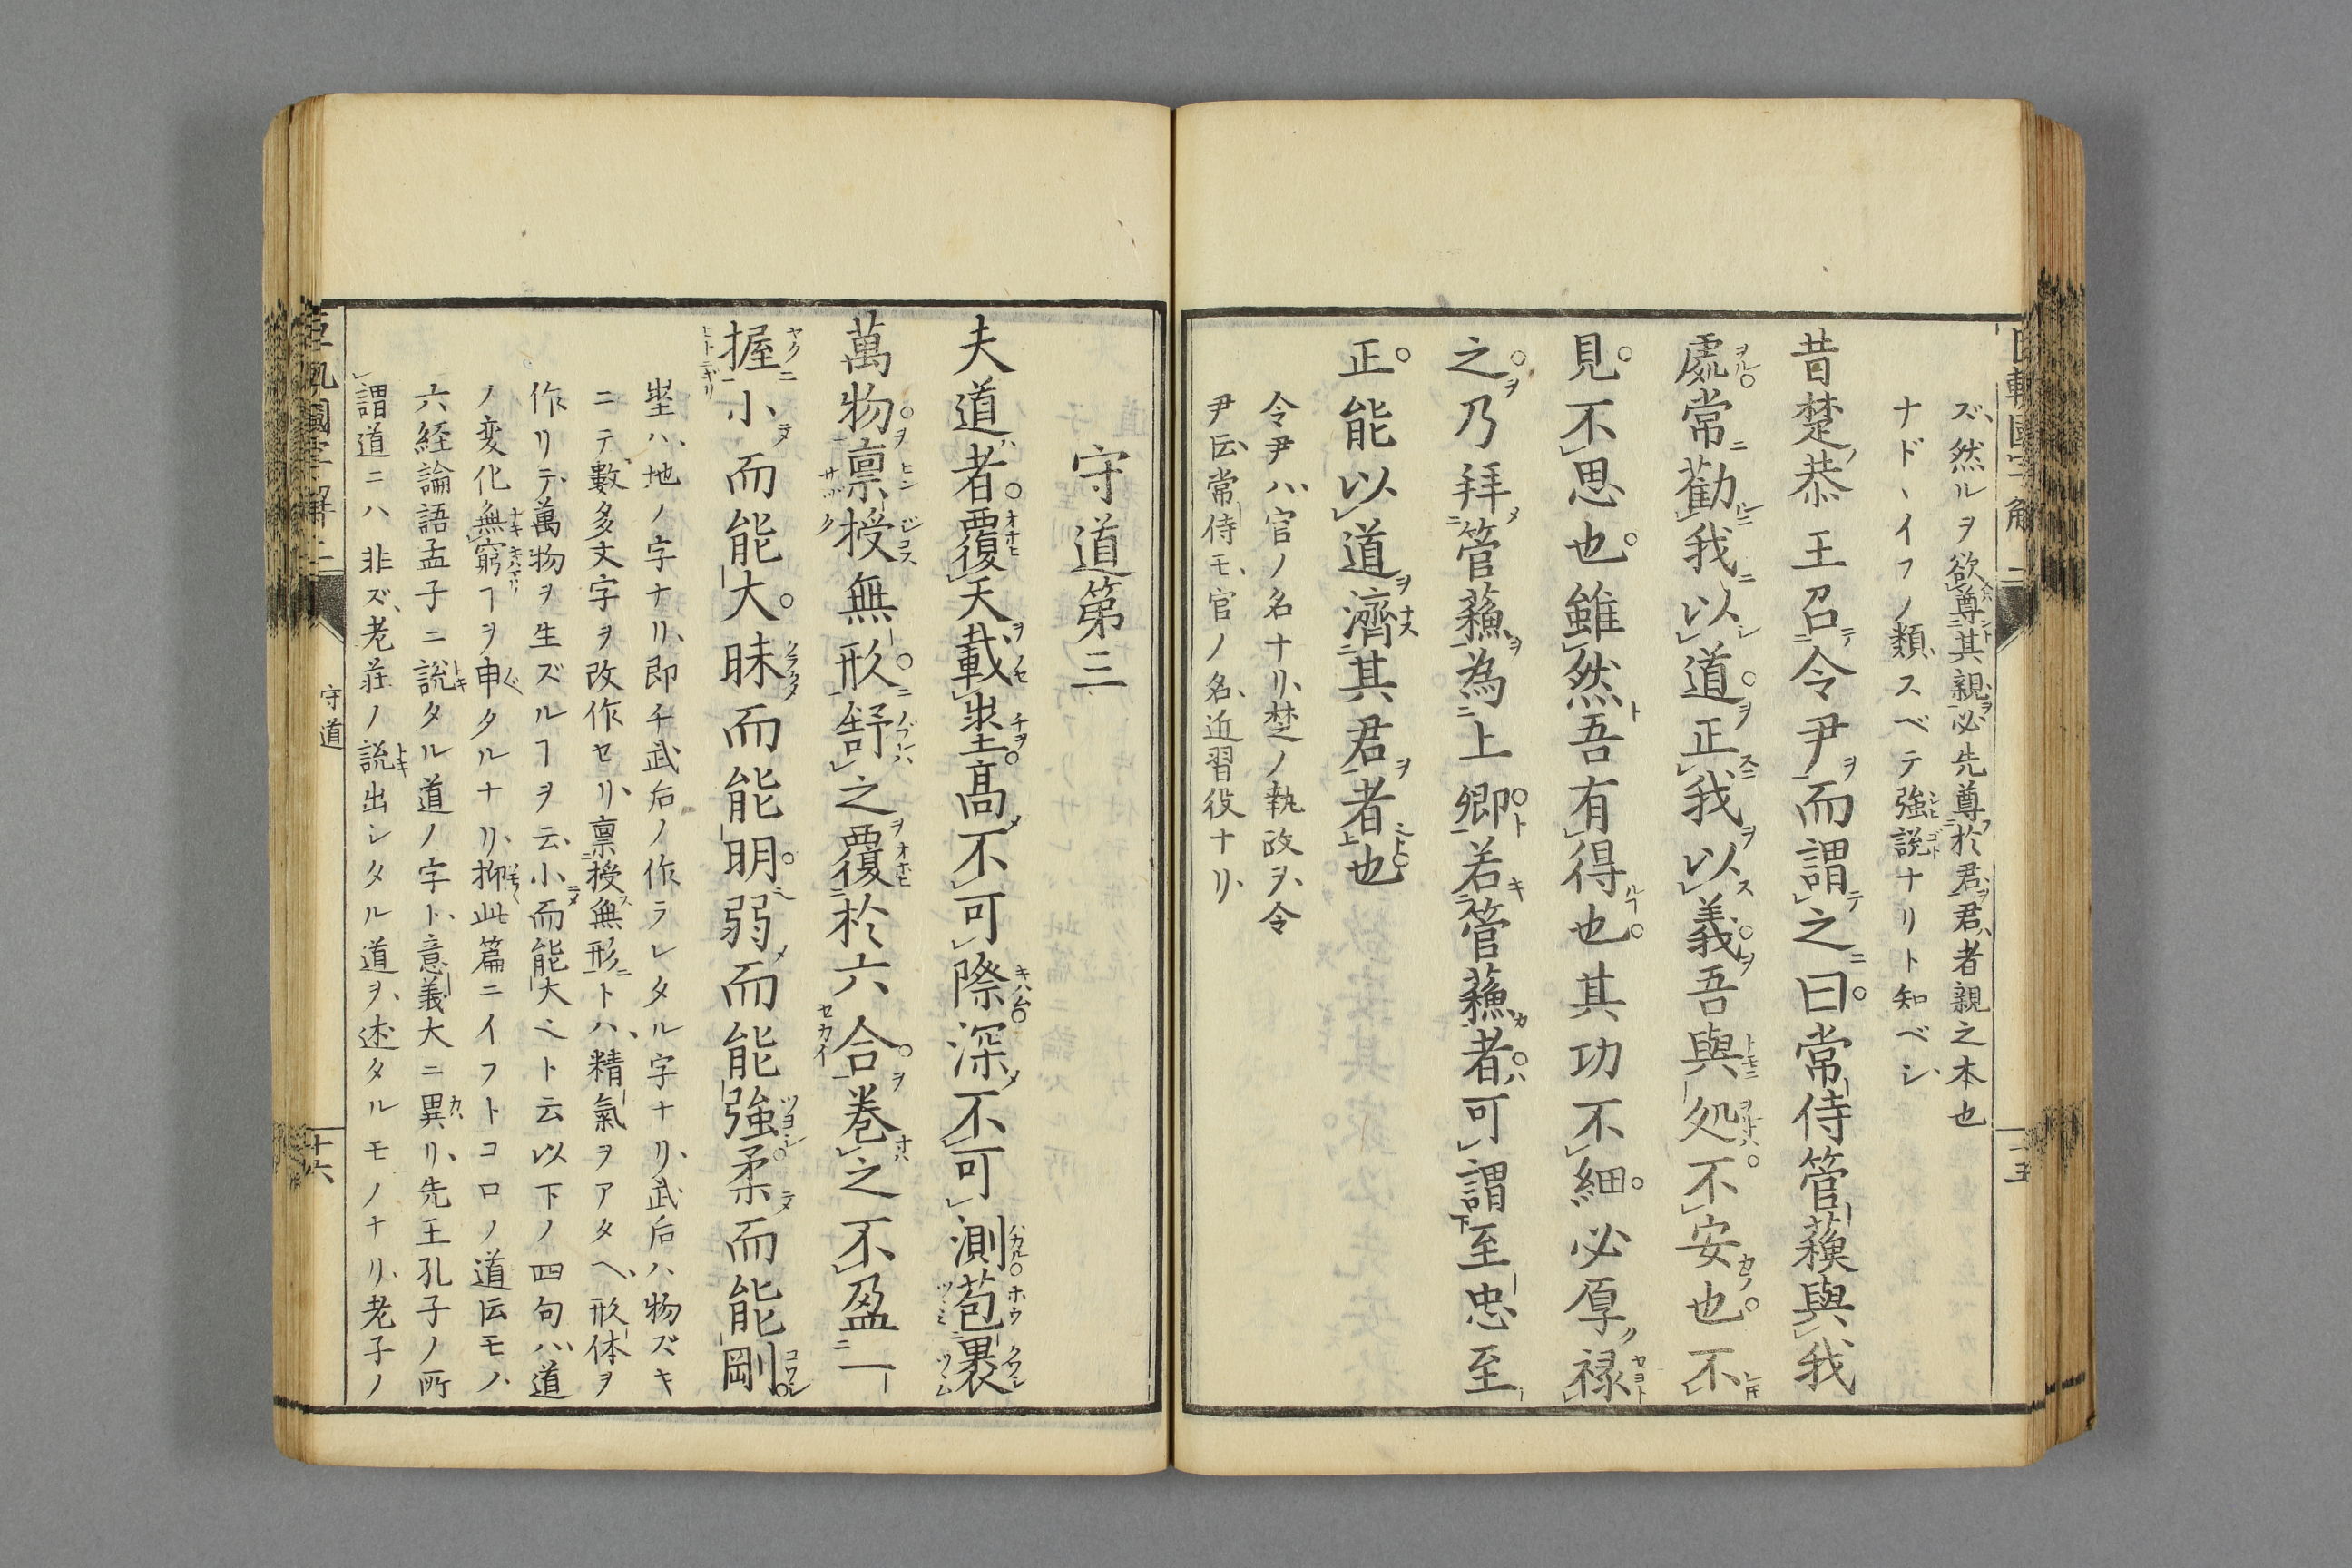 ズ、然ルヲ欲尊其親必先尊於君、君者親之本也
ナド、イフノ類、スベテ強説ナリト知ベシ、
昔楚恭王召令尹而謂之曰。常侍管蘓與我
處。常勸我以道。正我以義。吾與処。不安也。不
見。不思也。雖然吾有得也。其功不細。必厚禄
之。乃拜管蘓為上卿。若管蘓者。可謂至忠至
正。能以道濟其君者也
令尹ハ、官ノ名ナリ、楚ノ執政ヲ、令
尹伝、常侍モ、官ノ名、近習役ナリ、
守道第三
夫道者。覆天載埊。高不可際。深不可測。苞裹
萬物。禀授無形。舒之覆於六合。巻之不盈一
握。小而能大。昧而能明。弱而能強。柔而能剛。
埊ハ、地ノ字ナリ、即チ武后ノ作ラレタル字ナリ、武后ハ物ズキ
ニテ數多文字ヲ改作セリ、禀授無形トハ、精氣ヲアタヘ、形体ヲ
作リテ、萬物ヲ生ズルヿヲ云、小而能大ニト云以下ノ四句ハ、道
ノ変化無窮ヿヲ申タルナリ、抑此篇ニイフトコロノ道伝モノハ
六経論語孟子ニ説タル道ノ字ト、意義大ニ異リ、先王孔子ノ所
謂道ニハ非ズ、老荘ノ説出シタル道ヲ、述タルモノナリ、老子ノ
守道
十六